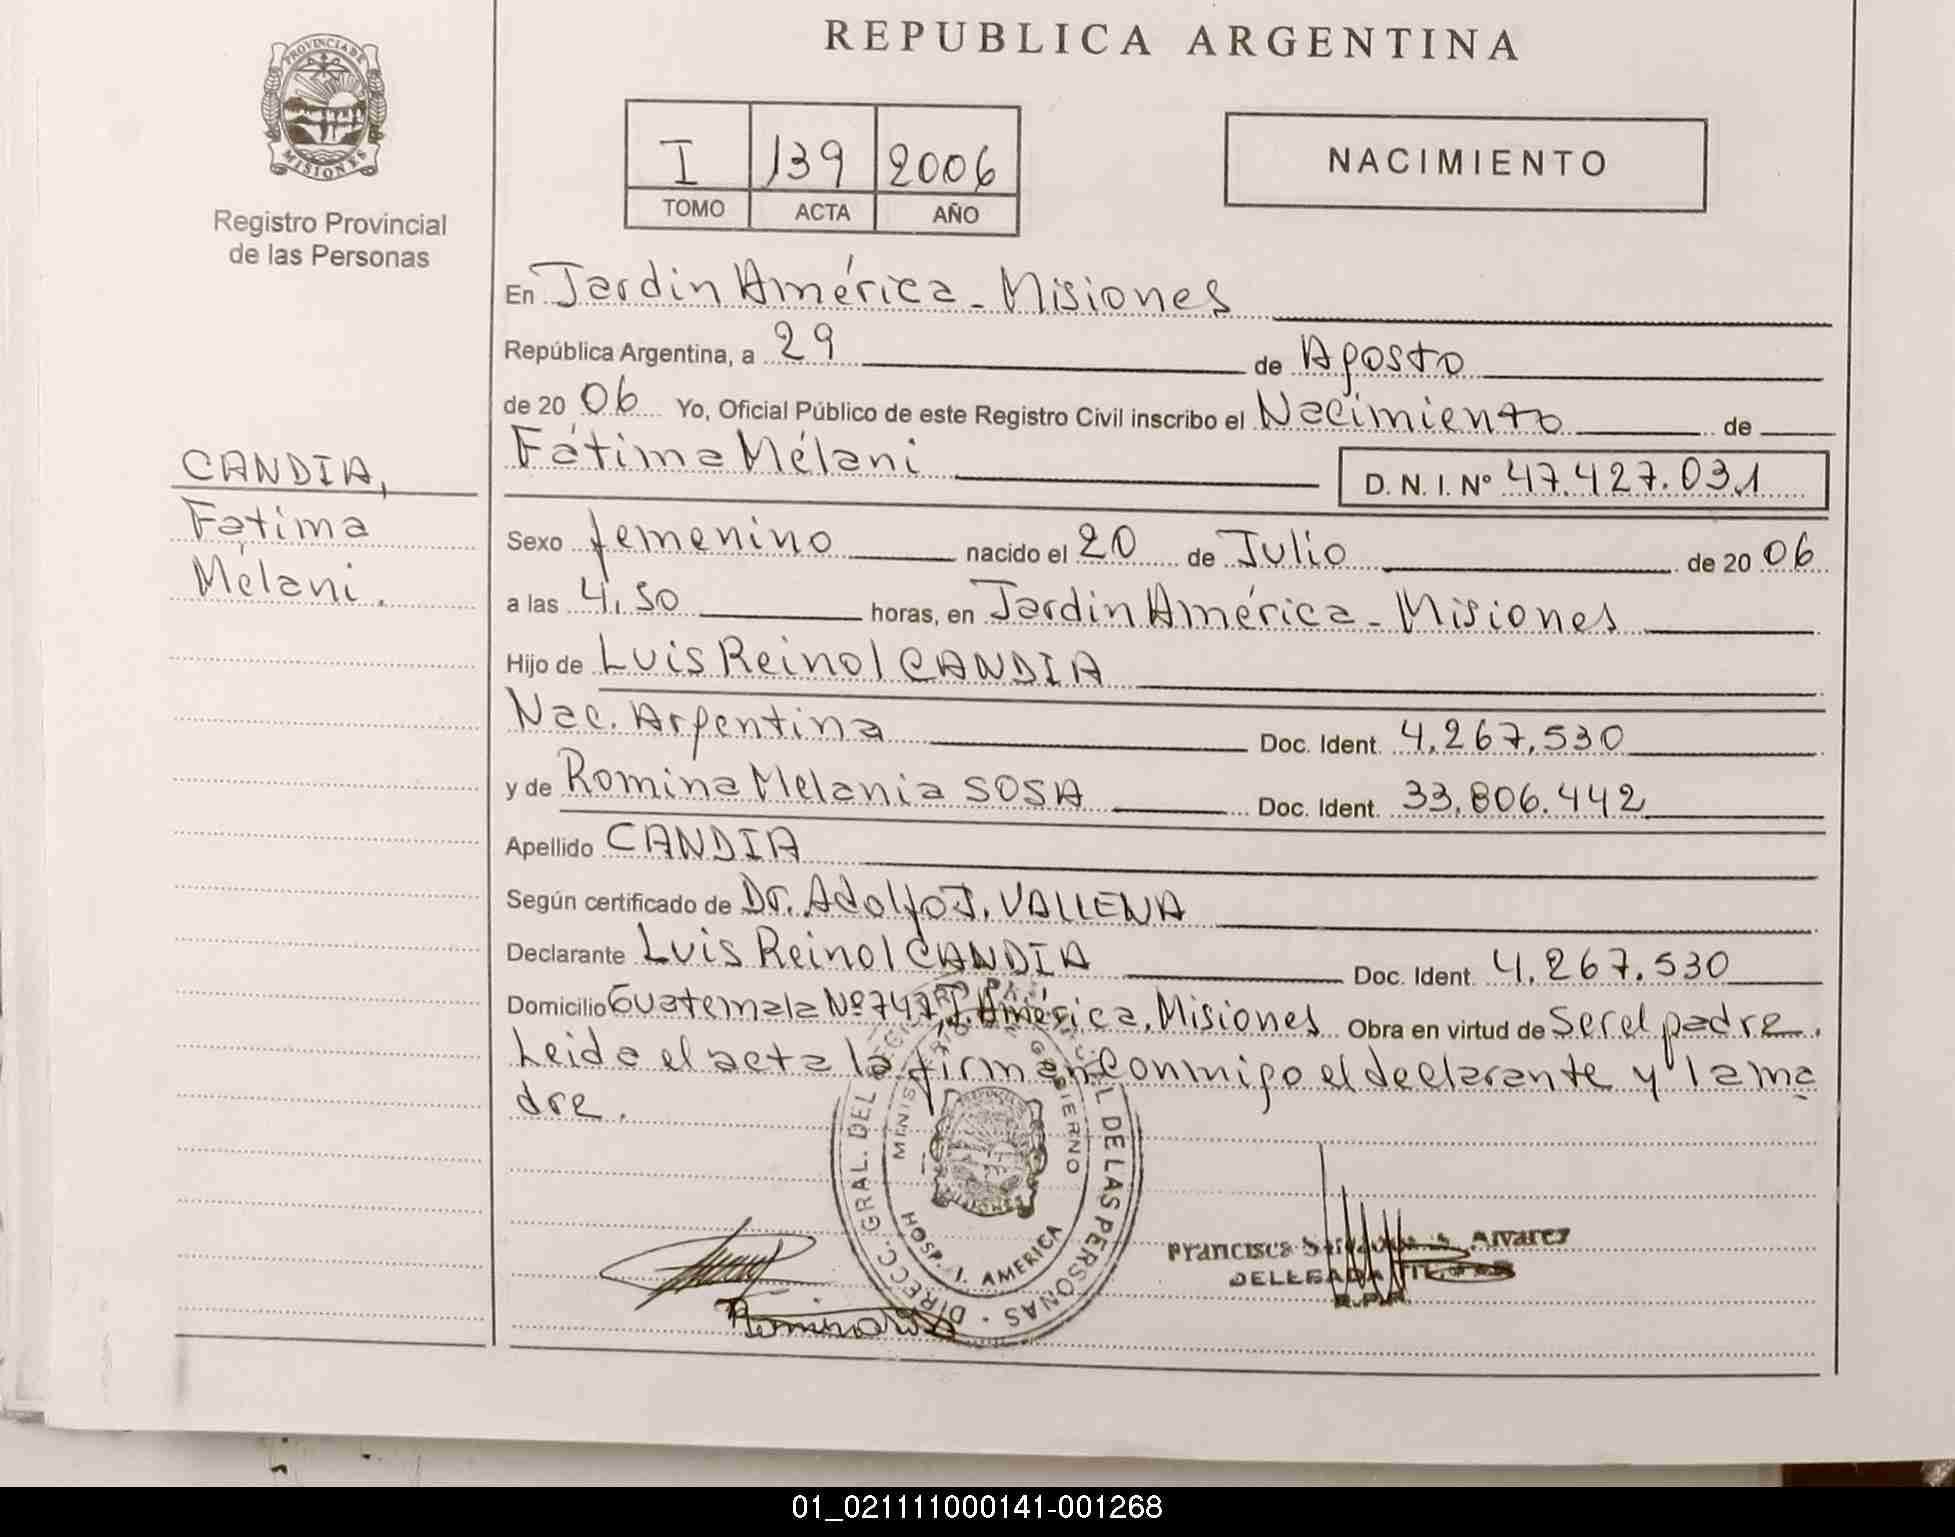 REPUBLICA ARGENTINA
PROVINCIA DE
MISIONES
Registro Provincial
de las Personas
I 139 2006
TOMO ACTA AÑO
NACIMIENTO
CANDIA,
Fátima
Mélani.
En Jardin América - Misiones
República Argentina, a 29 de Agosto
de 20 06 Yo, Oficial Público de este Registro Civil inscribo el Nacimiento de
Fátima Mélani D. N. I. Nº 47.427.031
Sexo femenino nacido el 20 de Julio de 20 06
a las 4,50 horas, en Jardin América - Misiones
Hijo de Luis Reinol CANDIA
Nac. Argentina Doc. Ident. 4.267.530
y de Romina Melania SOSA Doc. Ident. 33.806.442
Apellido CANDIA
Según certificado de Dr. Adolfo J. VALLENA
Declarante Luis Reinol CANDIA Doc. Ident. 4.267.530
Domicilio Guatemala Nº 747 J. América, Misiones Obra en virtud de Ser el padre.
Leida el acta la firman conmigo el declarante y la ma
dre.
DIRECC. GRAL. DEL DE LAS PERSONAS
MINISTERIO DE GOBIERNO
HOSP. J. AMERICA
Francisca Alvarez
R.P.P.
01_021111000141-001268